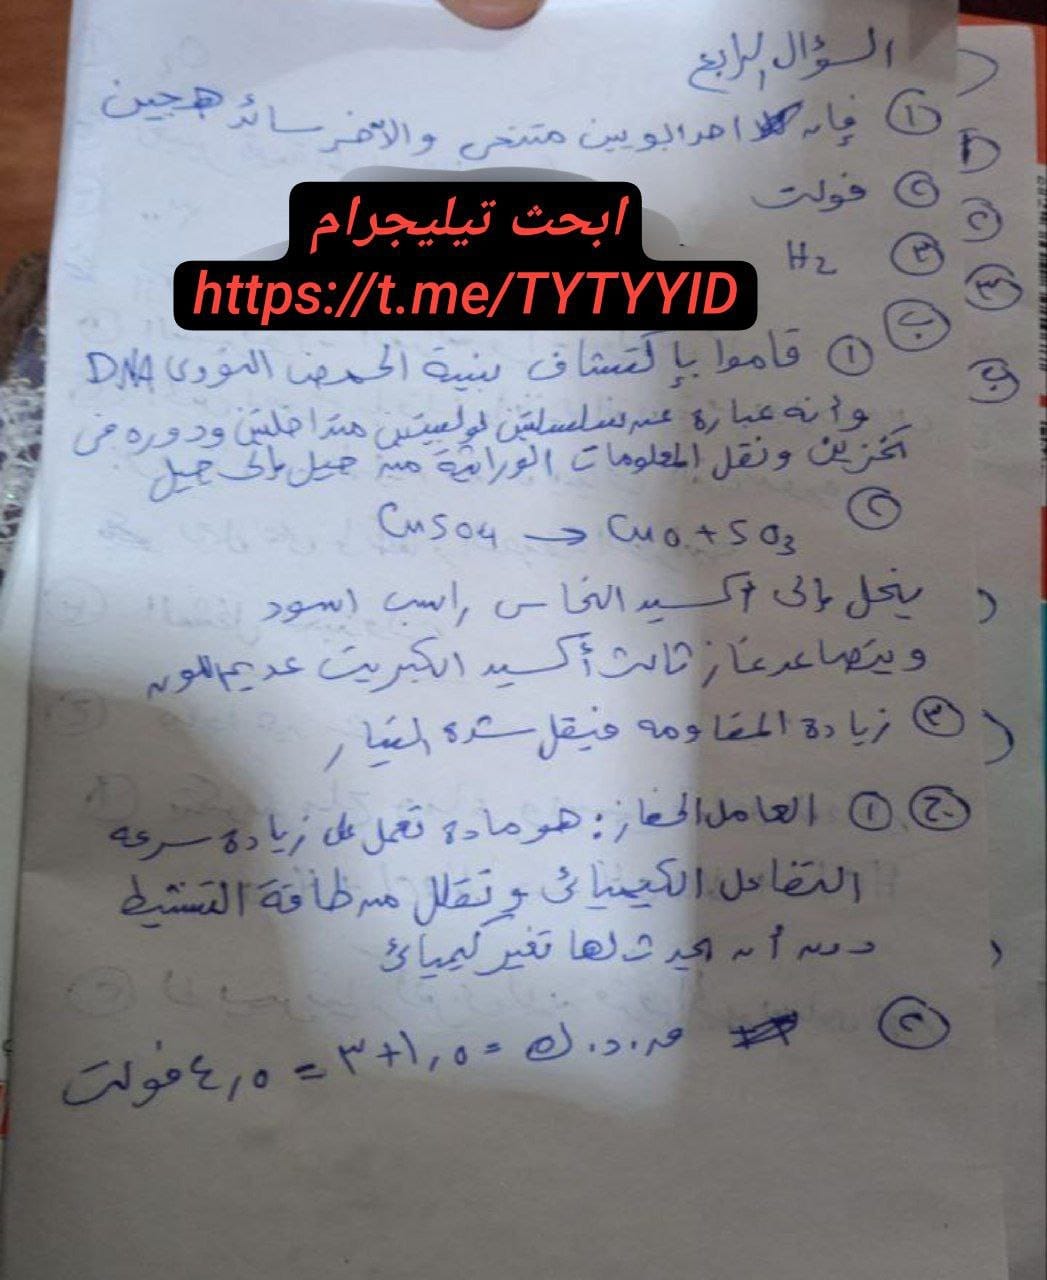 السؤال الرابع
① فإن احد ابويين متنحى والآخر سائد هجين
② فولت
③ H2
ابحث تيليجرام
https://t.me/TYTYYID
ب ① قاموا بإكتشاف بنية الحمض النووى DNA
وأنه عبارة عن سلسلتين لولبيتين متداخلتين ودوره فى
تخزين ونقل المعلومات الوراثية من جيل إلى جيل
② CuSO4 → CuO + SO3
ينحل إلى أكسيد النحاس راسب اسود
ويتصاعد غاز ثالث أكسيد الكبريت عديم اللون
③ زيادة المقاومه فيقل شدة التيار
ج ① العامل الحفاز : هو مادة تعمل على زيادة سرعه
التفاعل الكيميائى وتقلل من طاقة التنشيط
دون أن يحدث لها تغير كيميائى
② ق.د.ك = ١,٥+٣ = ٤,٥ فولت